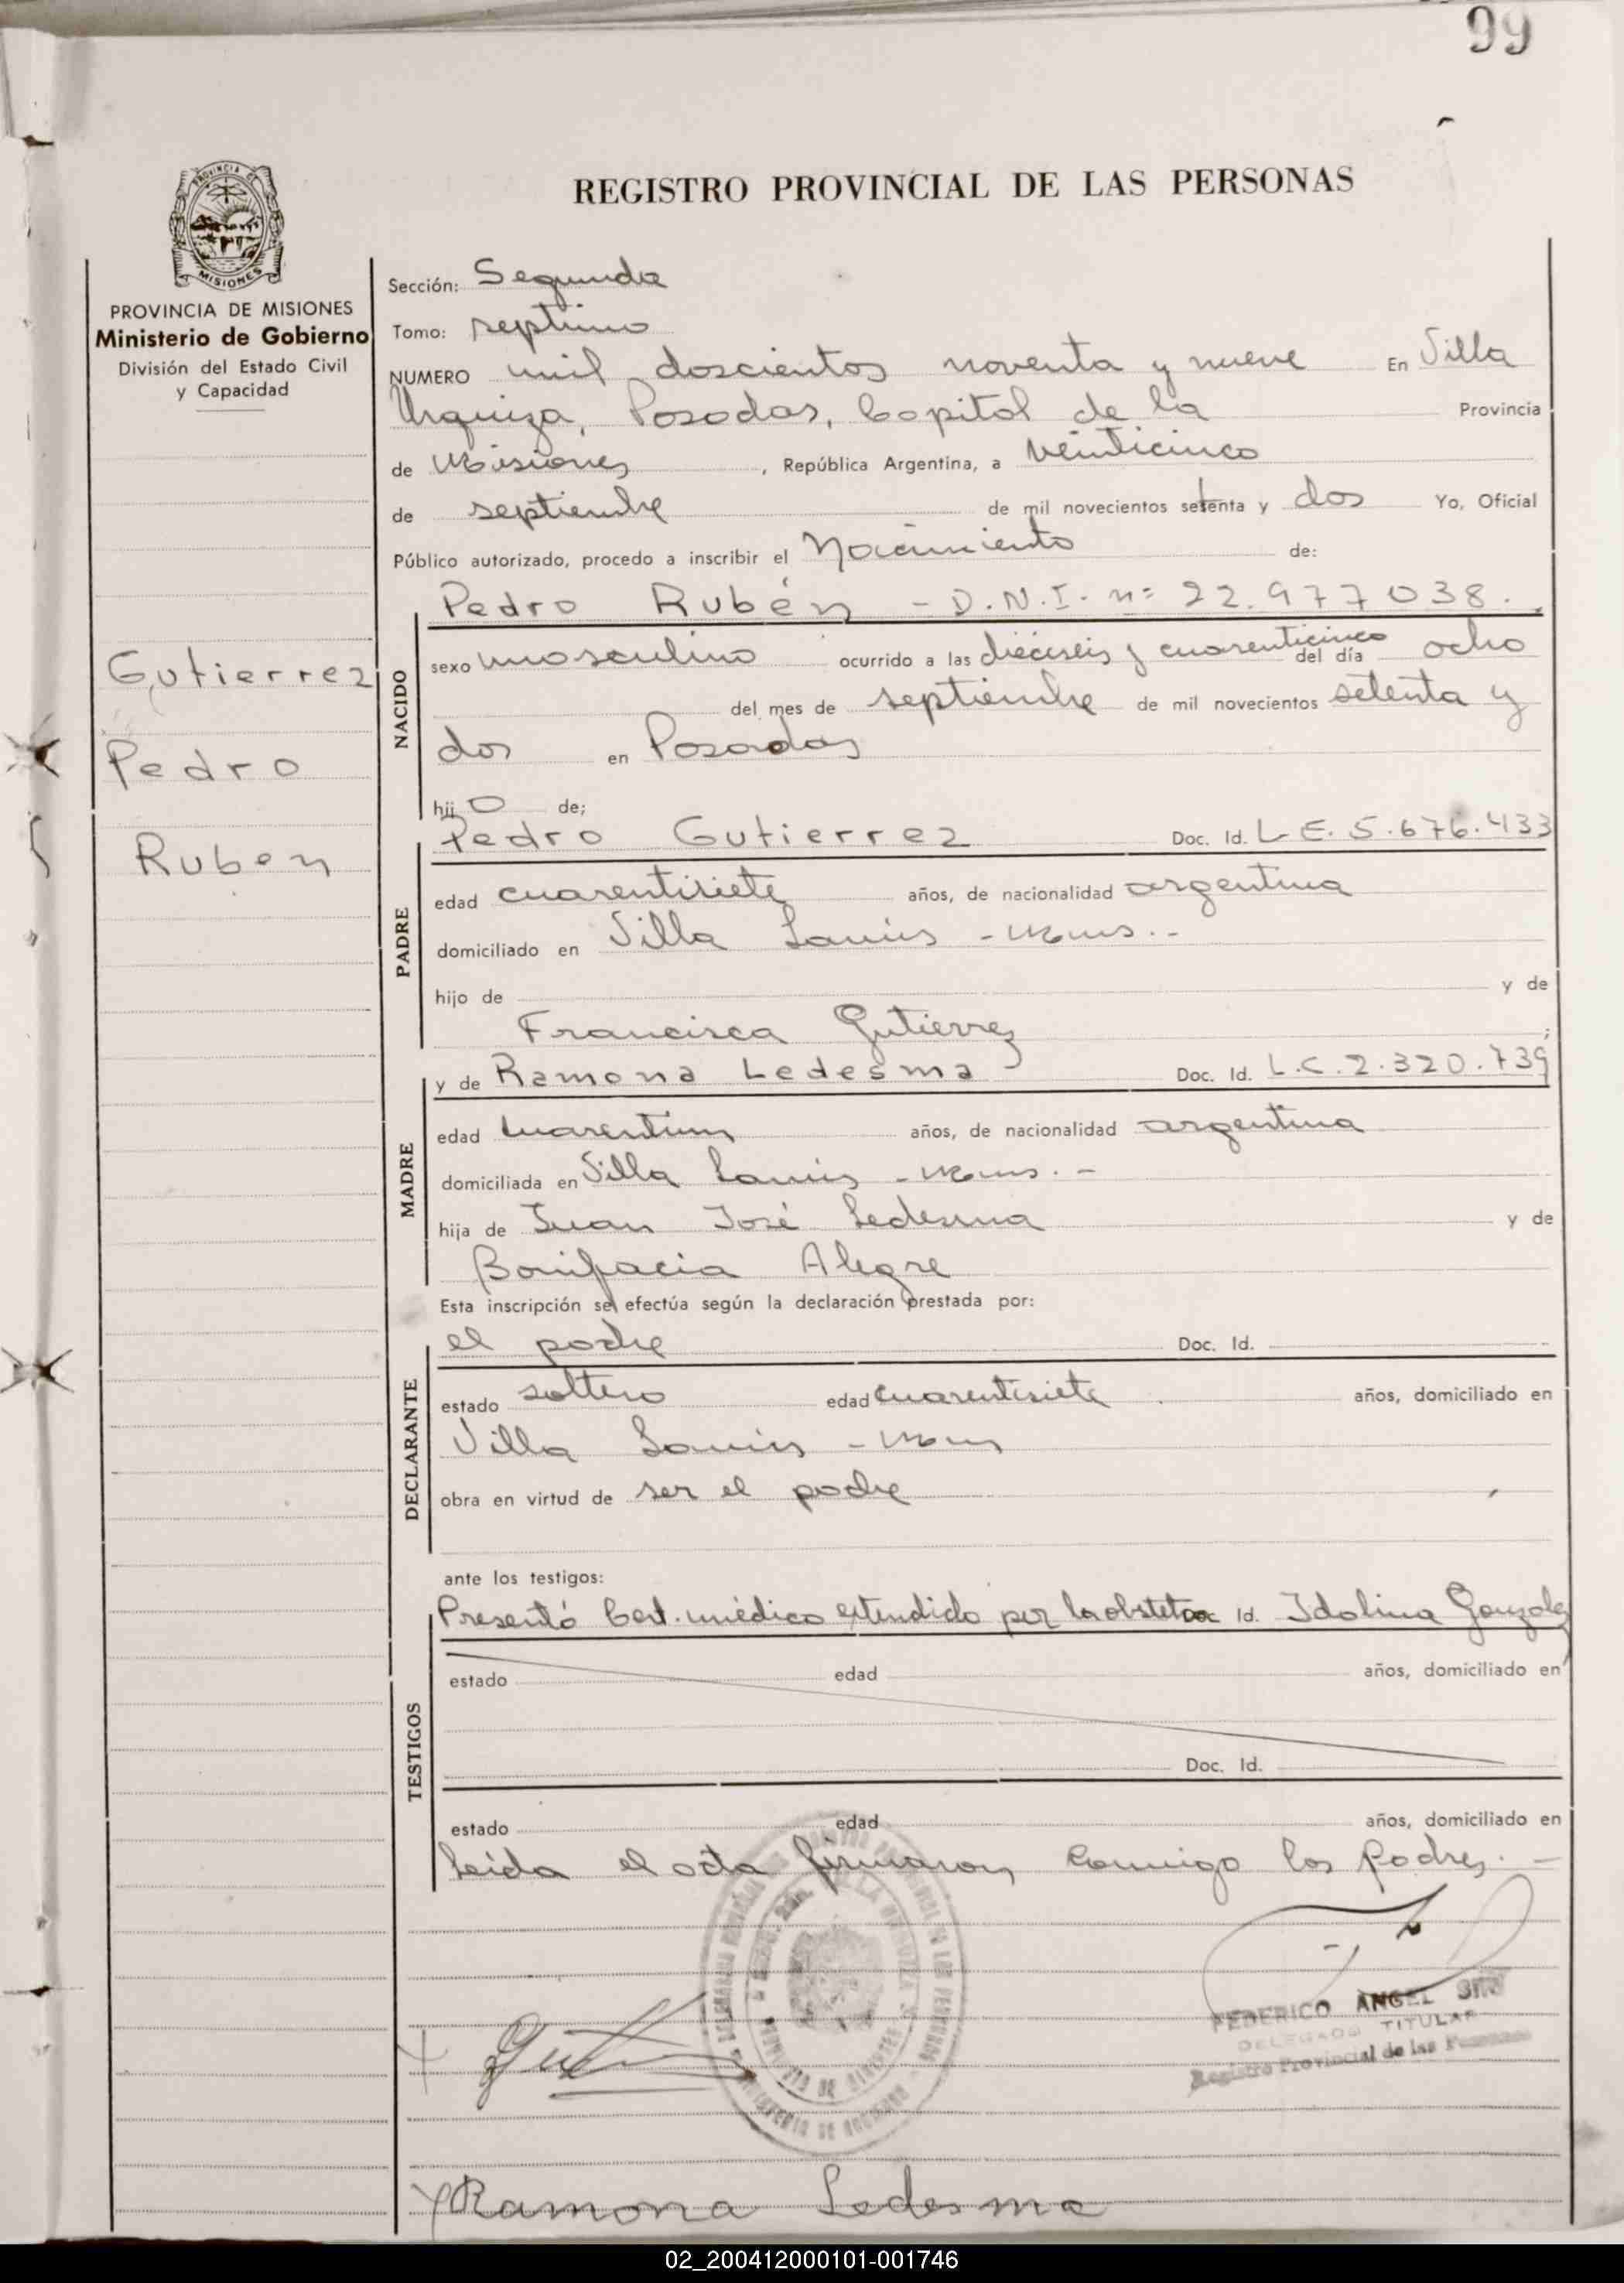 99
REGISTRO PROVINCIAL DE LAS PERSONAS
PROVINCIA DE
MISIONES
PROVINCIA DE MISIONES
Ministerio de Gobierno
División del Estado Civil
y Capacidad
Gutierrez
Pedro
Ruben
Sección: Segunda
Tomo: septimo
NUMERO mil doscientos noventa y nueve En Villa
Urquiza, Posadas, Capital de la Provincia
de Misiones, República Argentina, a veinticinco
de septiembre de mil novecientos setenta y dos Yo, Oficial
Público autorizado, procedo a inscribir el Nacimiento de:
Pedro Rubén - D.N.I. nº 22.977038.
NACIDO
sexo masculino ocurrido a las dieciseis y cuarenticinco del día ocho
del mes de septiembre de mil novecientos setenta y
dos en Posadas
hijo de;
Pedro Gutierrez Doc. Id. L.E. 5.676.433
PADRE
edad cuarentisiete años, de nacionalidad argentina
domiciliado en Villa Lanús - Mnes. -
hijo de y de
Francisca Gutierrez ;
y de Ramona Ledesma Doc. Id. L.C. 2.320.739
MADRE
edad cuarentiun años, de nacionalidad argentina
domiciliada en Villa Lanús - Mnes. -
hija de Juan José Ledesma y de
Bonifacia Alegre
Esta inscripción se efectúa según la declaración prestada por:
el padre Doc. Id.
DECLARANTE
estado soltero edad cuarentisiete años, domiciliado en
Villa Lanús - Mnes
obra en virtud de ser el padre
ante los testigos:
Presentó Cert. médico extendido por la obstetra Doc. Id. Idolina Gonzalez
TESTIGOS
estado edad años, domiciliado en
Doc. Id.
estado edad años, domiciliado en
Leida el acta firmaron conmigo los Padres. -
FEDERICO ANGEL
DELEGADO TITULAR
Registro Provincial de las Personas
Ramona Ledesma
02_200412000101-001746